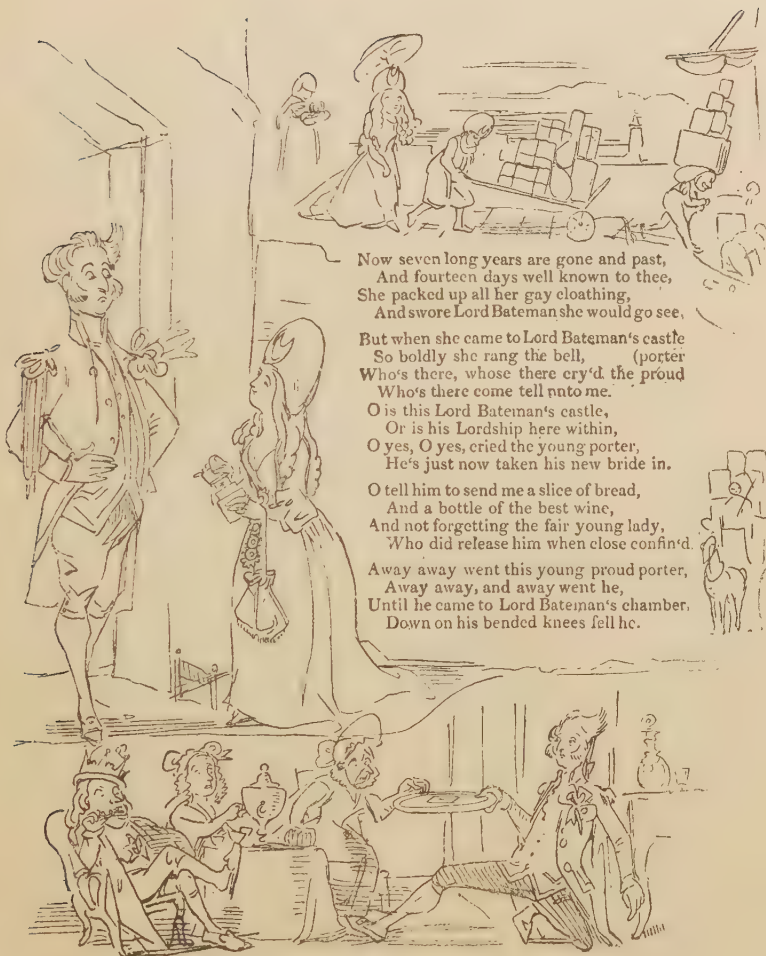 Now seven long years are gone and past,
And fourteen days well known to thee,
She packed up all her gay cloathing,
And swore Lord Bateman she would go see,
But when she came to Lord Bateman's castle
So boldly she rang the bell, (porter
Who's there, whose there cry'd the proud
Who's there come tell nnto me.
O is this Lord Bateman's castle,
Or is his Lordship here within,
O yes, O yes, cried the young porter,
He's just now taken his new bride in.
O tell him to send me a slice of bread,
And a bottle of the best wine,
And not forgetting the fair young lady,
Who did release him when close confin'd.
Away away went this young proud porter,
Away away, and away went he,
Until he came to Lord Bateman's chamber,
Down on his bended knees fell he.